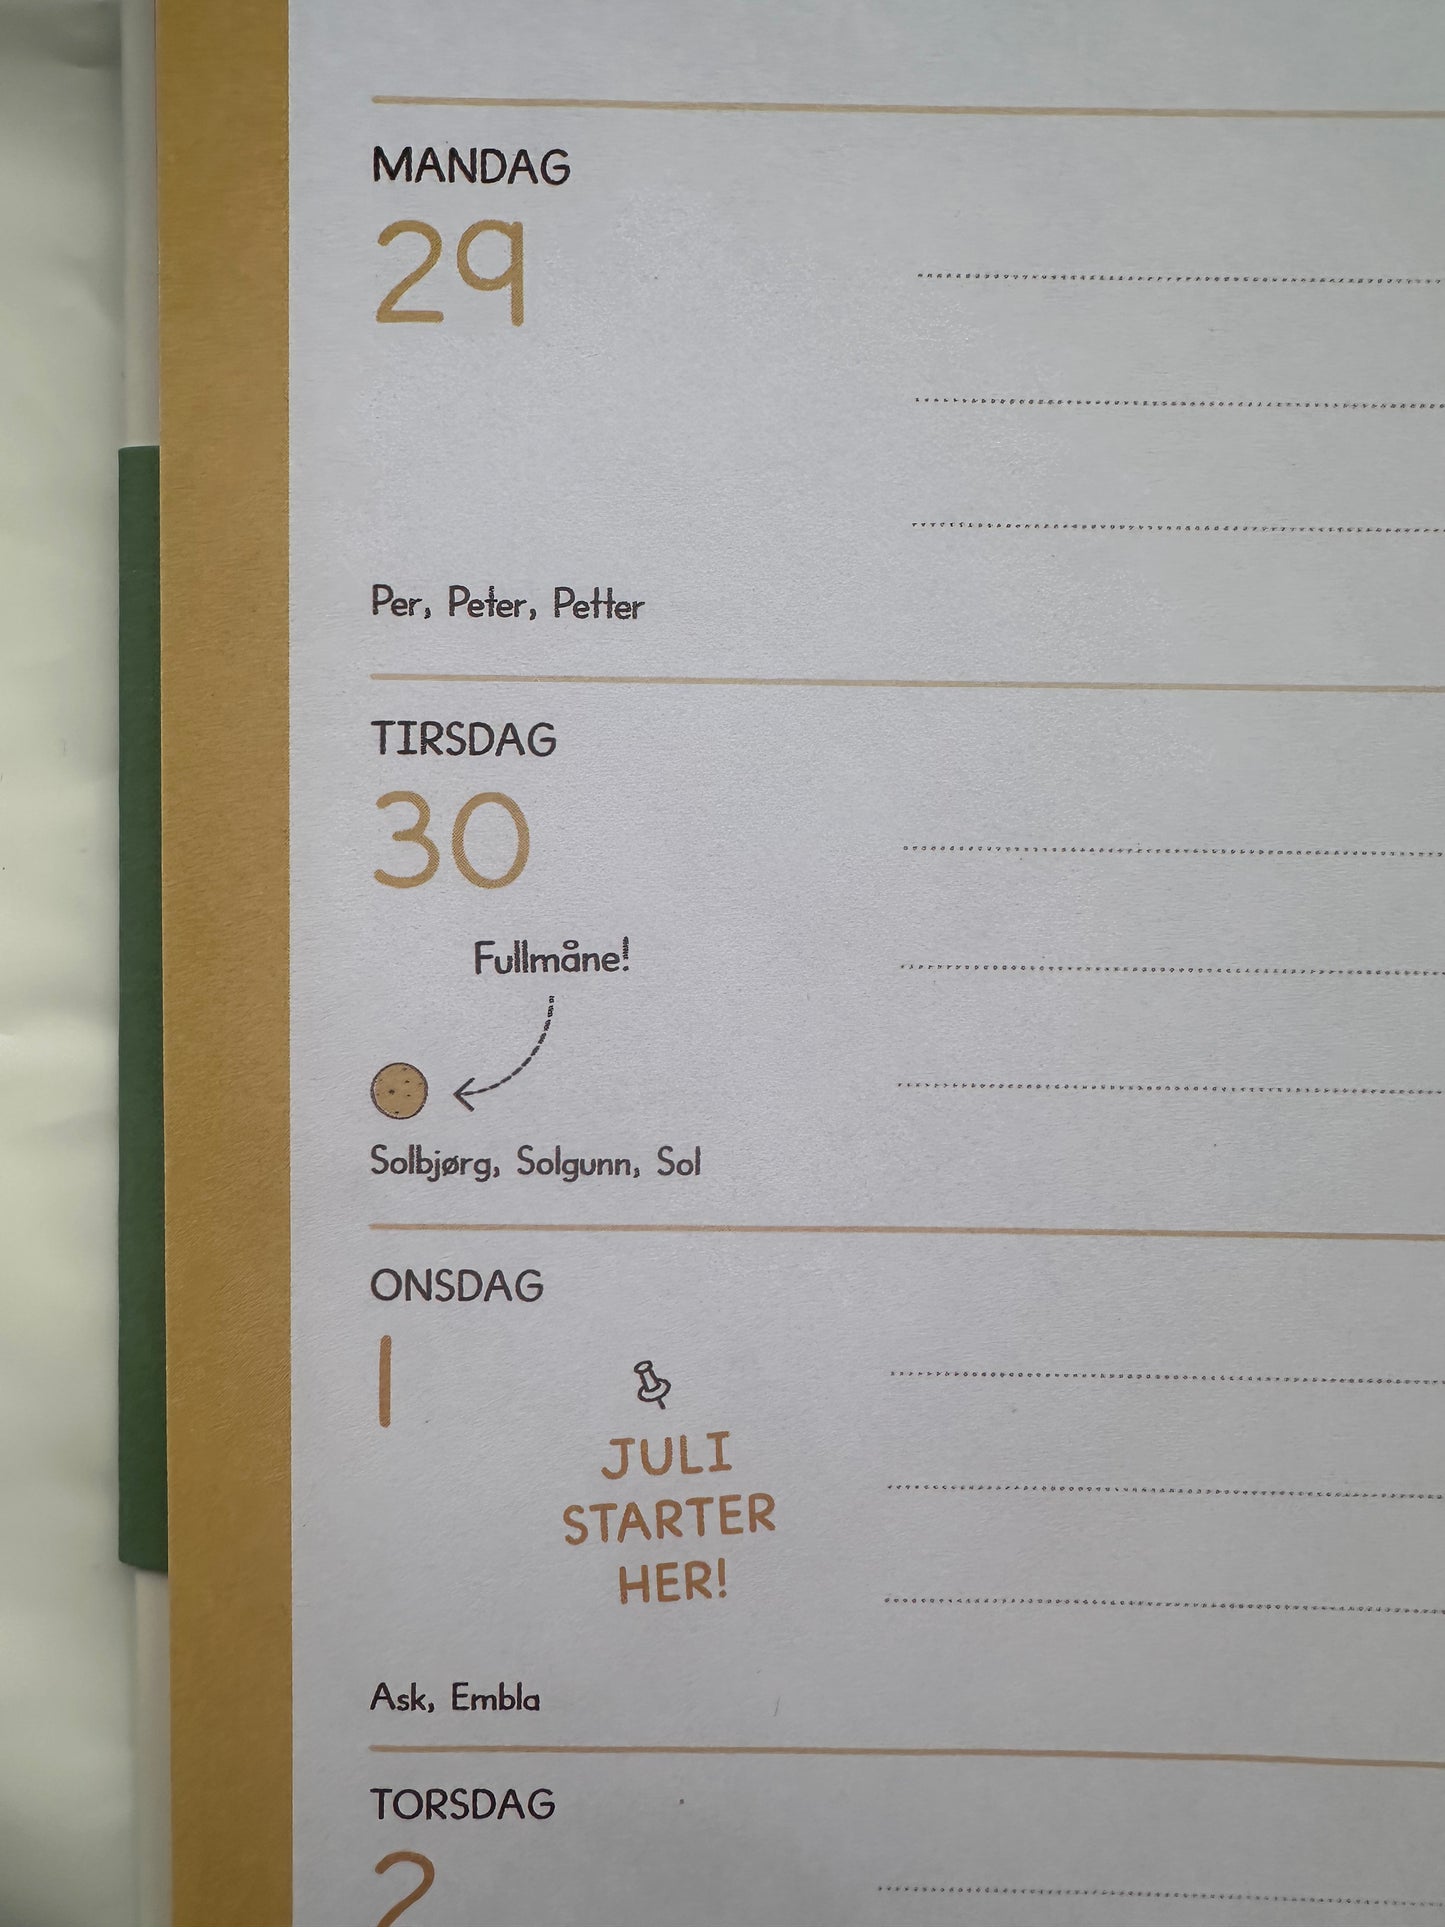 MANDAG
29
Per, Peter, Petter
TIRSDAG
30
Fullmåne!
Solbjørg, Solgunn, Sol
ONSDAG
1
JULI
STARTER
HER!
Ask, Embla
TORSDAG
2